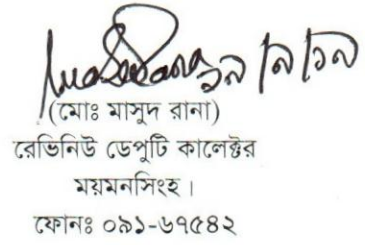 (মোঃ মাসুদ রানা)
রেভিনিউ ডেপুটি কালেক্টর
ময়মনসিংহ।
ফোনঃ ০৯১-৬৭৫৪২